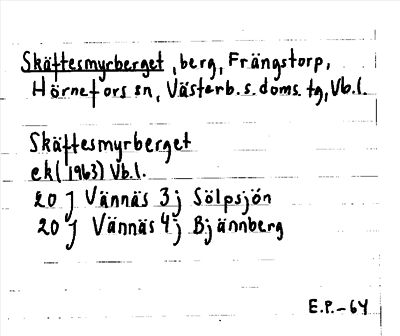 Skäftesmyrberget, berg, Frängstorp,
Hörnefors sn, Västerb. s. doms. tg, Vb. l.
Skäftesmyrberget
ek (1963) Vb. l.
20 J Vännäs 3j Sölpsjön
20 J Vännäs 4j Bjännberg
E.P.-64